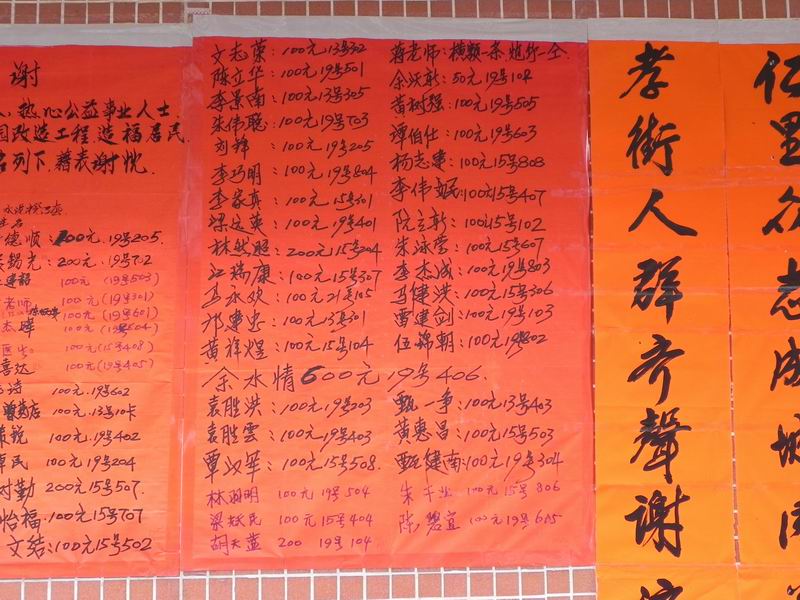 谢
人,热心公益事业人士
园改造工程,造福居民
名列下,藉表谢忱
德顺:200元.19号205.
锡光:200元.19号702
100元(19号503)
老师 100元(19号301)
100元(19号601)
杰晖 100元(19号504)
100元(15号408)
喜达 100元(19号405)
诗 100元.19号602
100元.13号10卡
锐 100元.19号402
民 100元 19号204
时勤 200元15号507.
怡福.100元15号707
文结:100元15号502
文志荣:100元13号302
陈立华:100元19号501
李景南:100元13号305
朱伟聪:100元19号703
刘锋:100元19号205
李巧明:100元19号804
李家真:100元15号301
梁送英:100元19号401
林然照:200元15号204
江瑞康:100元15号307
100元21号105
邝肇忠:100元13号301
黄祥煜:100元15号104
蒋老师:横额一条,炮竹一仝
余沃新:50元19号104
黄树强:100元19号505
谭伯仕:100元19号603
杨志东:100元15号808
李伟:100元15号407
阮立新:100元15号102
朱泳荣:100元15号607
李杰成:100元19号803
马健洪:100元15号306
雷建剑:100元19号103
伍锦朝:100元19号802
余水情600元19号406.
袁胜洪:100元19号203
袁胜雲:100元19号403
覃汉军:100元15号508.
林润明 100元19号504
梁栎民 100元15号404
胡天蓝 200 19号104
甄一争:100元13号403
黄惠昌:100元15号503
甄健南:100元19号304
100元15号806
陈碧宜 100元19号605
孝街人群齐聲谢
仁里众志成城